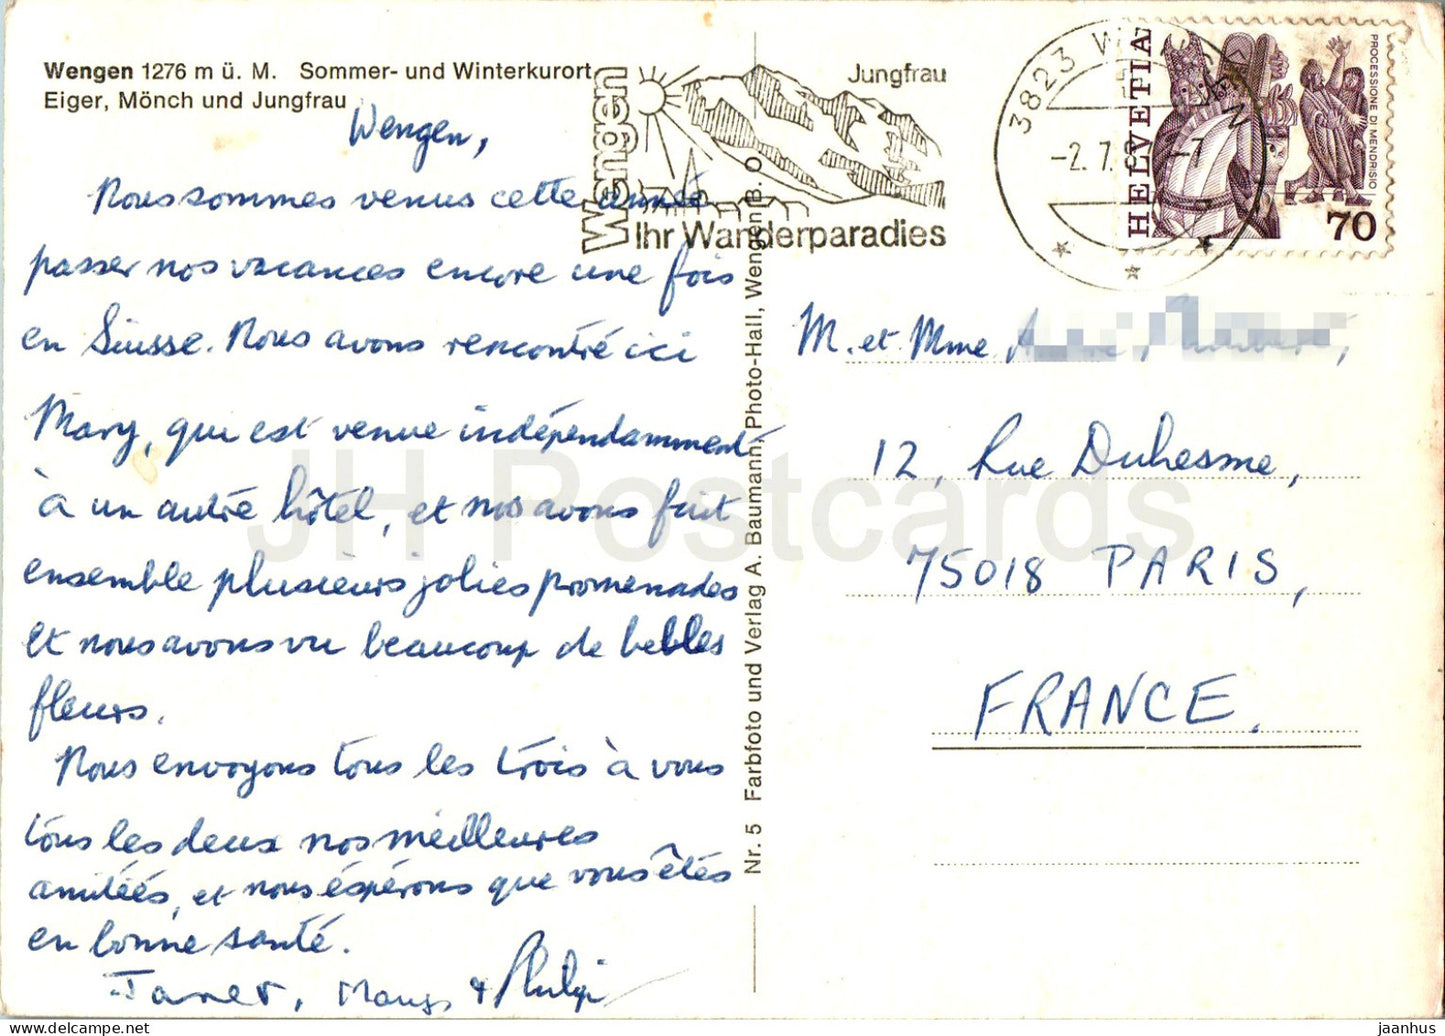 Wengen 1276 m ü. M. Sommer- und Winterkurort
Eiger, Mönch und Jungfrau
Wengen,
Nous sommes venus cette année
passer nos vacances encore une fois
en Suisse. Nous avons rencontré ici
Mary, qui est venue indépendamment
à un autre hôtel, et nous avons fait
ensemble plusieurs jolies promenades
et nous avons vu beaucoup de belles
fleurs.
Nous envoyons tous les trois à vous
tous les deux nos meilleures
amitiés, et nous éspérons que vous êtes
en bonne santé.
Janet, Mary, & Philip
Wengen
Jungfrau
Ihr Wanderparadies
3823 WENGEN
-2.7.8 -7
HELVETIA
PROCESSIONE DI MENDRISIO
70
Nr. 5 Farbfoto und Verlag A. Baumann, Photo-Hall, Wengen B. O
M. et Mme
12, Rue Duhesme,
75018 PARIS,
FRANCE.
JH Postcards
jaanhus — www.jaanhus.com